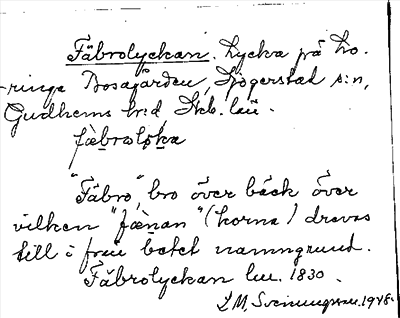 Fäbrolyckan. Lycka på Lo-
-ringa Bosagården, Sjogerstad s:n,
Gudhems h:d, Skb. län.
fæbrolyka
"Fäbro", bro över bäck över
vilken "fænan" (korna) drevos
till i från betet namngrund.
Fäbrolyckan lm. 1830.
L M, Sveningsson. 1948.